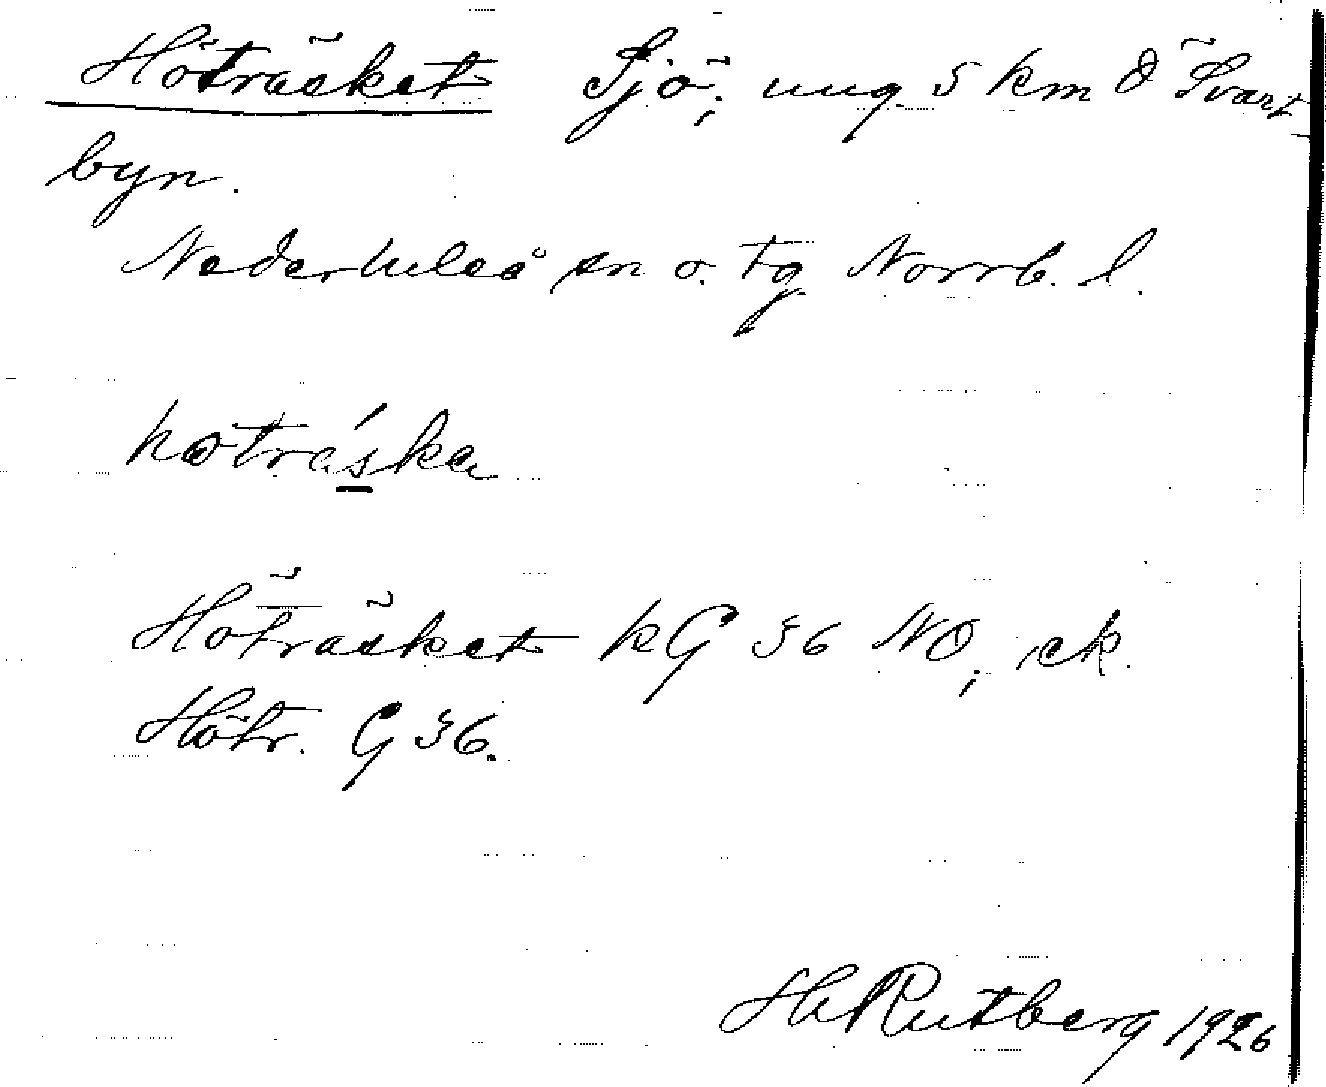 Höträsket Sjö; ung. 5 km Ö Svart-
byn.
Nederluleå sn o. tg Norrb. l.
høträska
Höträsket kG 36 NO; ek.
Hötr. G 36.
H Rutberg 1926